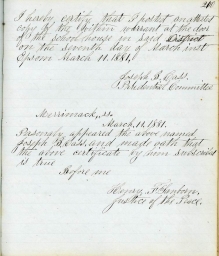 240
I hereby certify that I posted an attested
copy of the within warrant at the door
of the school house in said District
on the seventh day of March inst
Epsom March 11. 1881.
Joseph B. Cass.
Prudential Committee
Merrimack, ss.
March, 11. 1881.
Personally appeared the above named
Joseph B. Cass. and made oath that
the above certificate by him subscribed
is true
Before me
Henry F. Sanborn
Justice of the Peace.